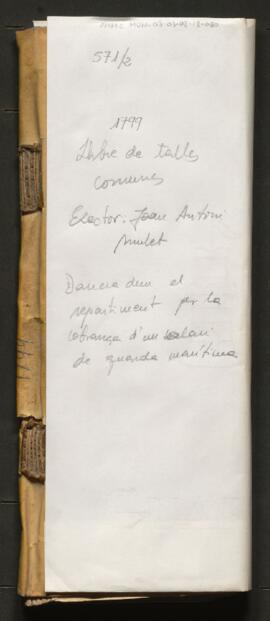 571/2
1799
Llibre de talles
comunes
Elector: Joan Antoni
Mulet
Darrera duu el
repartiment per la
cobrança d'un salari
de guarda marítima
1799